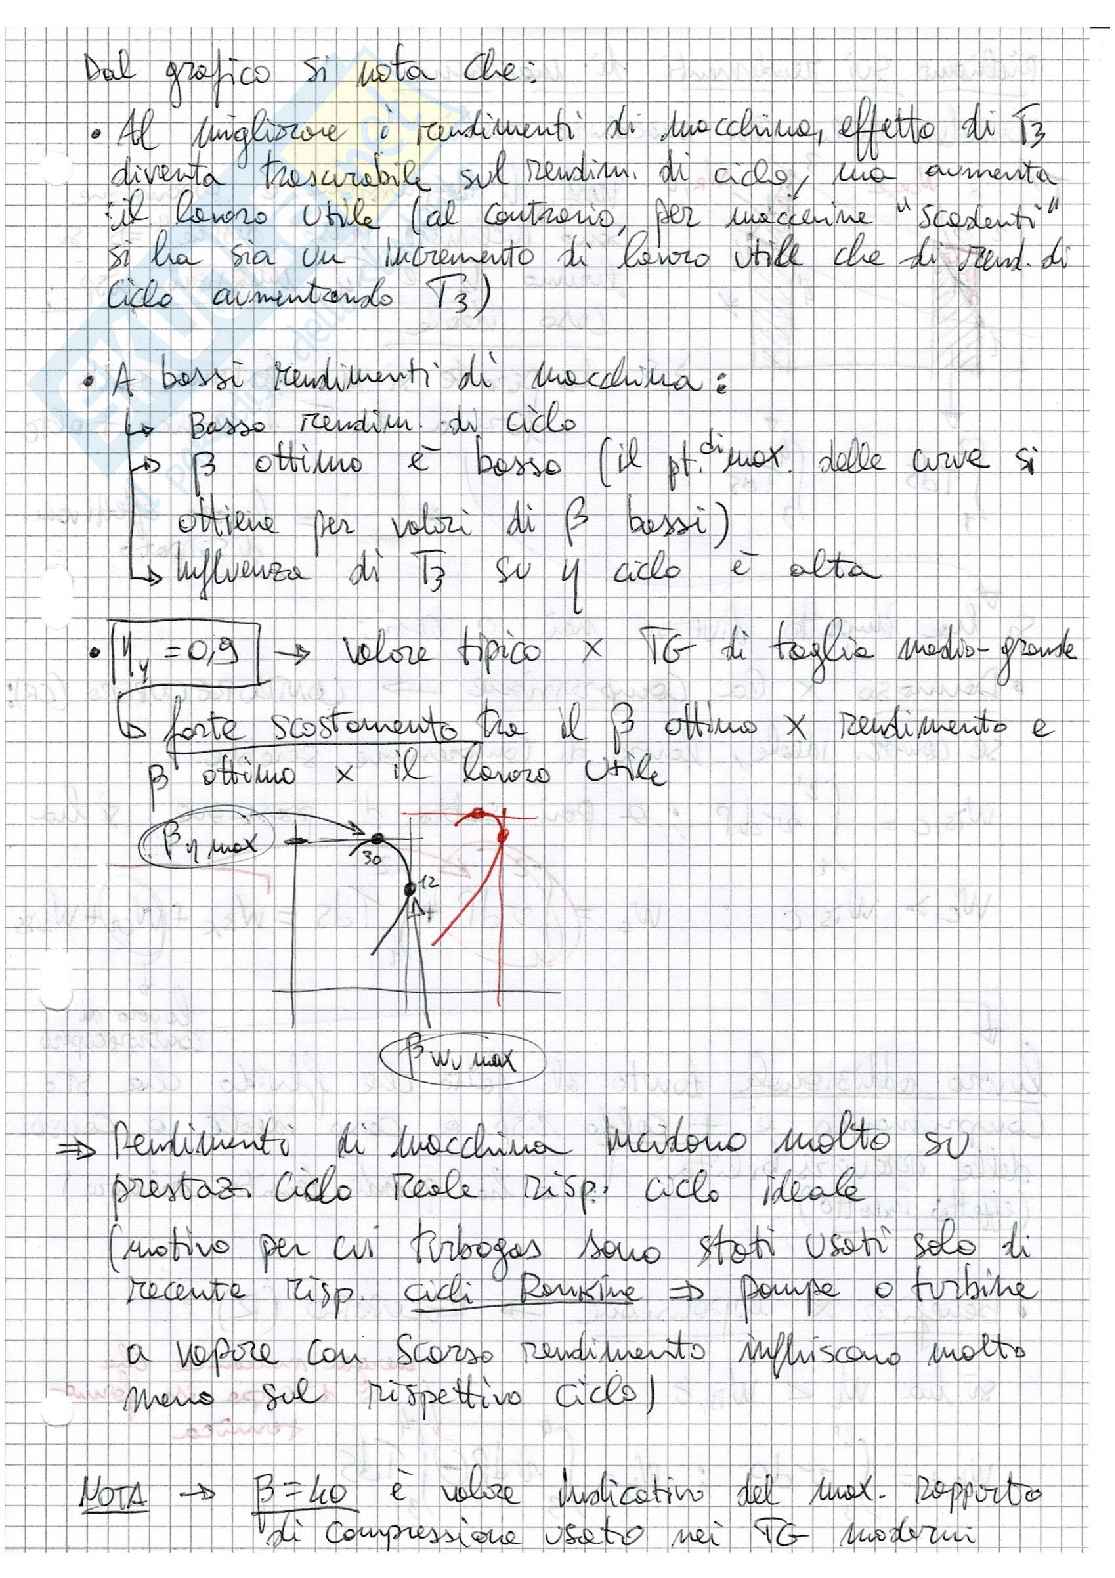 Dal grafico si nota che:
• Al migliorare i rendimenti di macchina, effetto di T3
diventa trascurabile sul rendim. di ciclo, ma aumenta
il lavoro utile (al contrario, per macchine "scadenti"
si ha sia un incremento di lavoro utile che di rend. di
ciclo aumentando T3)
• A bassi rendimenti di macchina:
↳ Basso rendim. di ciclo
↳ β ottimo è basso (il pt. di max. delle curve si
ottiene per valori di β bassi)
↳ Influenza di T3 su η ciclo è alta
• ηy = 0,9 → valore tipico x TG di taglia medio-grande
↳ forte scostamento tra il β ottimo x rendimento e
β ottimo x il lavoro utile
β η max
30
12
β wu max
⇒ Rendimenti di macchina incidono molto su
prestaz. ciclo reale risp. ciclo ideale
(motivo per cui turbogas sono stati usati solo di
recente risp. cicli Rankine ⇒ pompe o turbine
a vapore con scarso rendimento influiscono molto
meno sul rispettivo ciclo)
NOTA → β = 40 è valore indicativo del max. rapporto
di compressione usato nei TG moderni